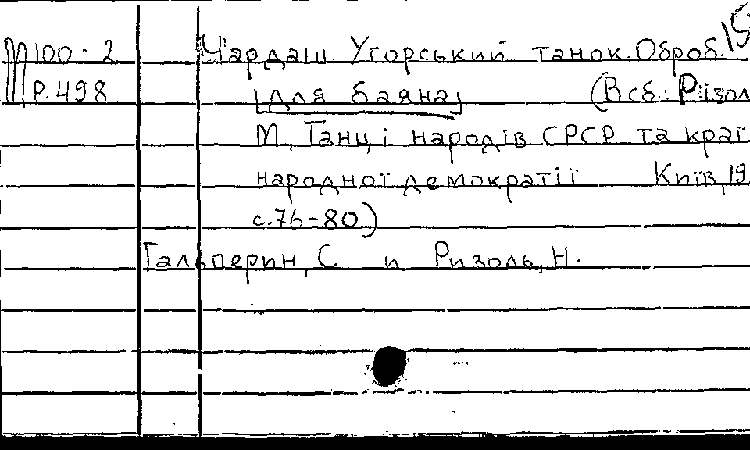 М100-2 Чардаш Угорський танок. Оброб. 15
Р.498 [для баяна] (В сб: Різол
М. Танці народів СРСР та краї
народної демократії Київ, 19
с.76-80)
Гальперин, С. и Ризоль, Н.